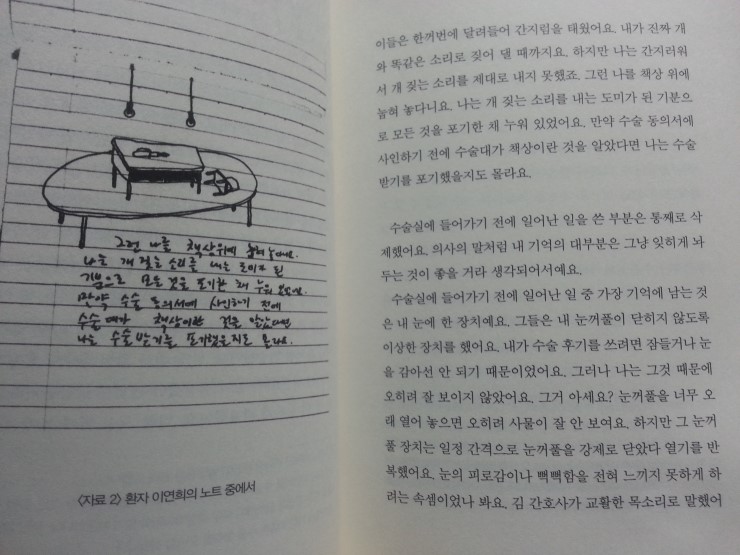 그런 나를 책상위에 눕혀 놓다니요.
나는 개 짖는 소리를 내는 도미가 된
기분으로 모든 것을 포기한 채 누워 있었어요.
만약 수술 동의서에 사인하기 전에
수술대가 책상이란 것을 알았다면
나는 수술받기를 포기했을지도 몰라요.
〈자료 2〉 환자 이연희의 노트 중에서
이들은 한꺼번에 달려들어 간지럼을 태웠어요. 내가 진짜 개
와 똑같은 소리로 짖어 댈 때까지요. 하지만 나는 간지러워
서 개 짖는 소리를 제대로 내지 못했죠. 그런 나를 책상 위에
눕혀 놓다니요. 나는 개 짖는 소리를 내는 도미가 된 기분으
로 모든 것을 포기한 채 누워 있었어요. 만약 수술 동의서에
사인하기 전에 수술대가 책상이란 것을 알았다면 나는 수술
받기를 포기했을지도 몰라요.
수술실에 들어가기 전에 일어난 일을 쓴 부분은 통째로 삭
제했어요. 의사의 말처럼 내 기억의 대부분은 그냥 잊히게 놔
두는 것이 좋을 거라 생각되어서예요.
수술실에 들어가기 전에 일어난 일 중 가장 기억에 남는 것
은 내 눈에 한 장치예요. 그들은 내 눈꺼풀이 닫히지 않도록
이상한 장치를 했어요. 내가 수술 후기를 쓰려면 잠들거나 눈
을 감아선 안 되기 때문이었어요. 그러나 나는 그것 때문에
오히려 잘 보이지 않았어요. 그거 아세요? 눈꺼풀을 너무 오
래 열어 놓으면 오히려 사물이 잘 안 보여요. 하지만 그 눈꺼
풀 장치는 일정 간격으로 눈꺼풀을 강제로 닫았다 열기를 반
복했어요. 눈의 피로감이나 뻑뻑함을 전혀 느끼지 못하게 하
려는 속셈이었나 봐요. 김 간호사가 교활한 목소리로 말했어